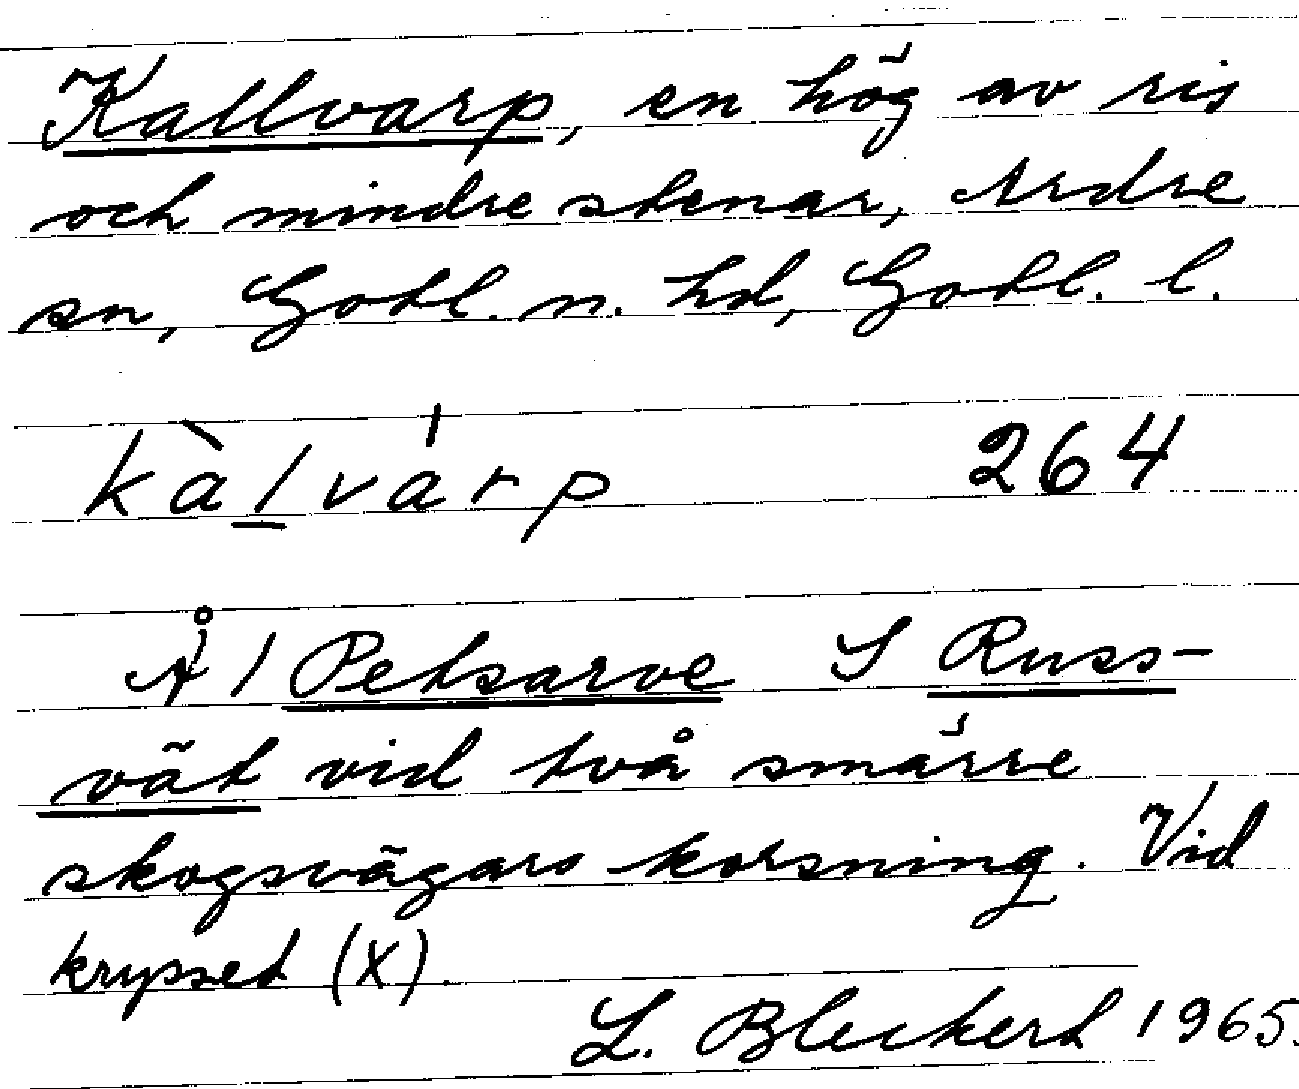 Kallvarp, en hög av ris
och mindre stenar, Ardre
sn, Gotl. n. hd, Gotl. l.
kàlvárp 264
Å / Petsarve S Russ-
vät vid två smärre
skogsvägars korsning. Vid
krysset (X).
L. Bleckert 1965.